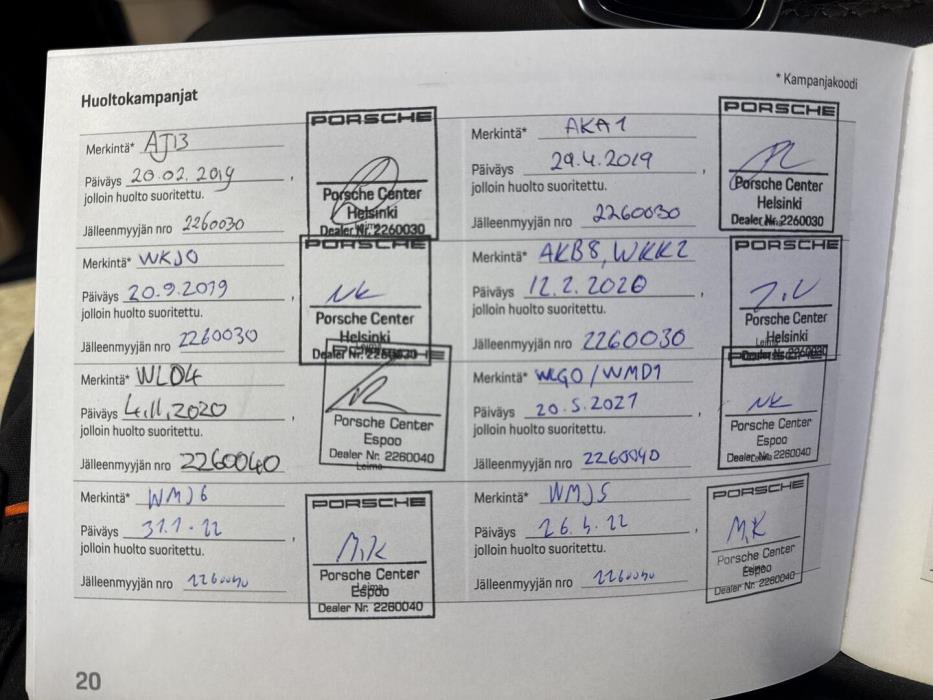 Huoltokampanjat
* Kampanjakoodi
Merkintä* AJ13
Päiväys 20.02.2019,
jolloin huolto suoritettu.
Jälleenmyyjän nro 2260030
PORSCHE
Porsche Center
Helsinki
Dealer Nr. 2260030
Merkintä* AKA1
Päiväys 29.4.2019,
jolloin huolto suoritettu.
Jälleenmyyjän nro 2260030
PORSCHE
Porsche Center
Helsinki
Dealer Nr. 2260030
Merkintä* WKJ0
Päiväys 20.9.2019,
jolloin huolto suoritettu.
Jälleenmyyjän nro 2260030
PORSCHE
NK
Porsche Center
Helsinki
Leima
Dealer Nr. 2260030
Merkintä* AKB8, WKK2
Päiväys 12.2.2020,
jolloin huolto suoritettu.
Jälleenmyyjän nro 2260030
PORSCHE
Porsche Center
Helsinki
Leima
Dealer Nr. 2260030
Merkintä* WLD4
Päiväys 4.11.2020,
jolloin huolto suoritettu.
Jälleenmyyjän nro 2260040
Porsche Center
Espoo
Dealer Nr. 2260040
Leima
Merkintä* WLG0/WMD1
Päiväys 20.5.2021,
jolloin huolto suoritettu.
Jälleenmyyjän nro 2260040
PORSCHE
NK
Porsche Center
Espoo
Dealer Nr. 2260040
Merkintä* WMJ6
Päiväys 31.1.22
jolloin huolto suoritettu.
Jälleenmyyjän nro 2260040
PORSCHE
M.K
Porsche Center
Leima
Espoo
Dealer Nr. 2260040
Merkintä* WMJ5
Päiväys 26.4.22,
jolloin huolto suoritettu.
Jälleenmyyjän nro 2260040
PORSCHE
M.K
Porsche Center
Leima
Espoo
Dealer Nr. 2260040
20